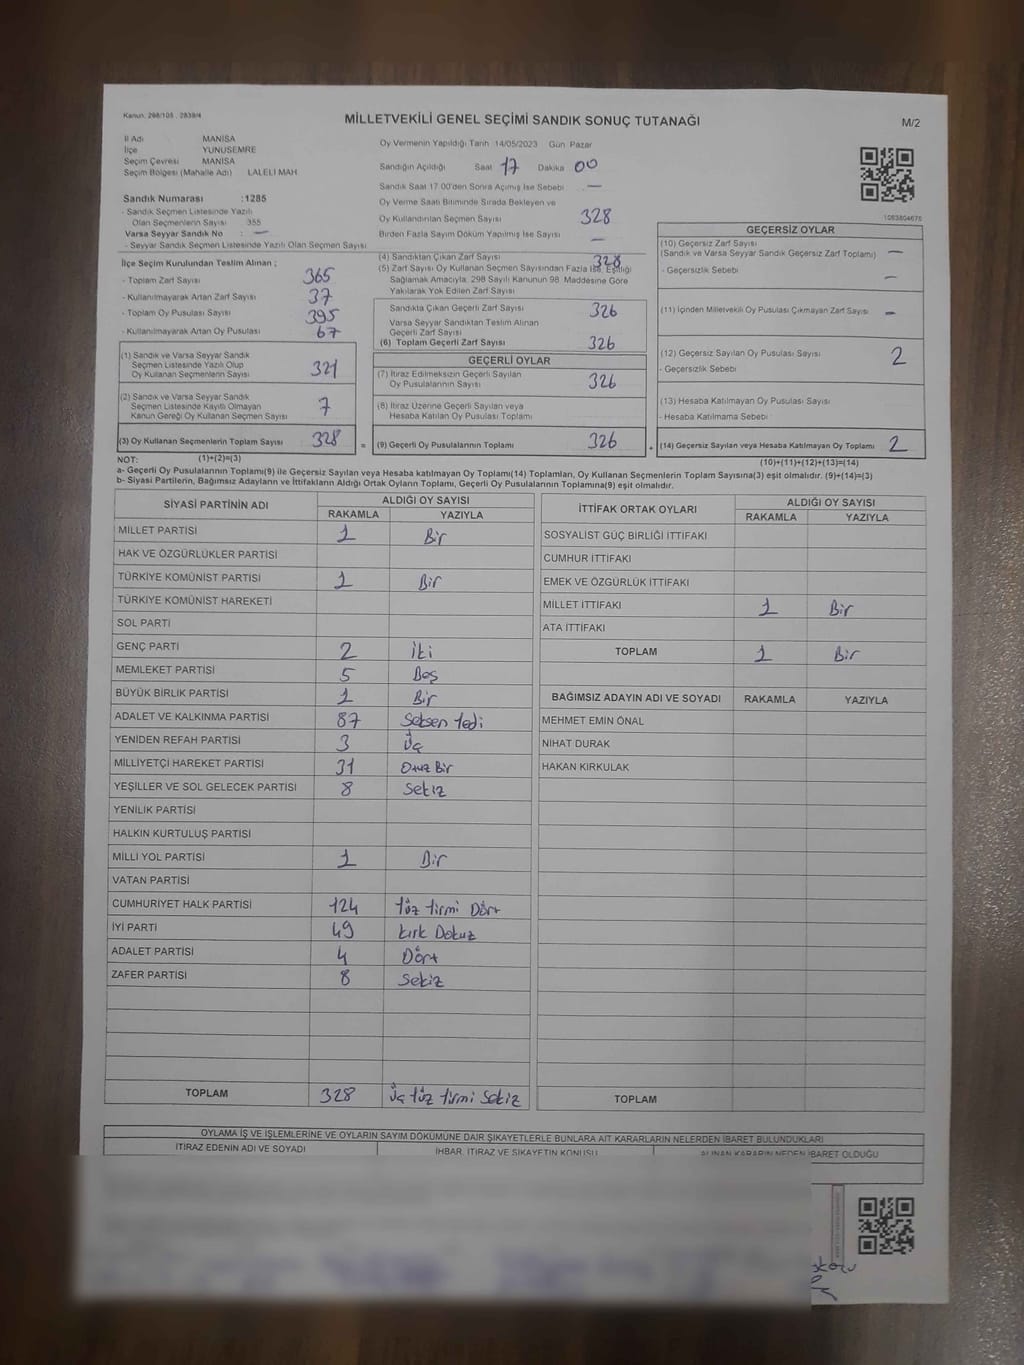 Kanun. 298/105 . 2839/4
MİLLETVEKİLİ GENEL SEÇİMİ SANDIK SONUÇ TUTANAĞI
M/2
İl Adı MANİSA
İlçe YUNUSEMRE
Seçim Çevresi MANİSA
Seçim Bölgesi (Mahalle Adı) LALELİ MAH
Oy Vermenin Yapıldığı Tarih 14/05/2023 Gün Pazar
Sandığın Açıldığı Saat 17 Dakika 00
Sandık Saat 17 00'den Sonra Açımış İse Sebebi —
Sandık Numarası :1285
- Sandık Seçmen Listesinde Yazılı
Olan Seçmenlerin Sayısı 355
Varsa Seyyar Sandık No : —
- Seyyar Sandık Seçmen Listesinde Yazılı Olan Seçmen Sayısı
Oy Verme Saati Bitiminde Sırada Bekleyen ve
Oy Kullandırılan Seçmen Sayısı 328
Birden Fazla Sayım Döküm Yapılmış İse Sayısı —
1083804675
İlçe Seçim Kurulundan Teslim Alınan ;
- Toplam Zarf Sayısı 365
- Kullanılmayarak Artan Zarf Sayısı 37
- Toplam Oy Pusulası Sayısı 395
- Kullanılmayarak Artan Oy Pusulası 67
(1) Sandık ve Varsa Seyyar Sandık
Seçmen Listesinde Yazılı Olup
Oy Kullanan Seçmenlerin Sayısı 321
(2) Sandık ve Varsa Seyyar Sandık
Seçmen Listesinde Kayıtlı Olmayan
Kanun Gereği Oy Kullanan Seçmen Sayısı 7
(3) Oy Kullanan Seçmenlerin Toplam Sayısı 328 =
(4) Sandıktan Çıkan Zarf Sayısı 328
(5) Zarf Sayısı Oy Kullanan Seçmen Sayısından Fazla İse, Eşitliği
Sağlamak Amacıyla, 298 Sayılı Kanunun 98. Maddesine Göre
Yakılarak Yok Edilen Zarf Sayısı
Sandıkta Çıkan Geçerli Zarf Sayısı 326
Varsa Seyyar Sandıktan Teslim Alınan
Geçerli Zarf Sayısı
(6) Toplam Geçerli Zarf Sayısı 326
GEÇERLİ OYLAR
(7) İtiraz Edilmeksizin Geçerli Sayılan
Oy Pusulalarının Sayısı 326
(8) İtiraz Üzerine Geçerli Sayılan veya
Hesaba Katılan Oy Pusulası Toplamı
(9) Geçerli Oy Pusulalarının Toplamı 326 +
GEÇERSİZ OYLAR
(10) Geçersiz Zarf Sayısı
(Sandık ve Varsa Seyyar Sandık Geçersiz Zarf Toplamı) —
- Geçersizlik Sebebi —
(11) İçinden Milletvekili Oy Pusulası Çıkmayan Zarf Sayısı —
(12) Geçersiz Sayılan Oy Pusulası Sayısı 2
- Geçersizlik Sebebi
(13) Hesaba Katılmayan Oy Pusulası Sayısı
- Hesaba Katılmama Sebebi
(14) Geçersiz Sayılan veya Hesaba Katılmayan Oy Toplamı 2
NOT: (1)+(2)=(3)
(10)+(11)+(12)+(13)=(14)
a- Geçerli Oy Pusulalarının Toplamı(9) ile Geçersiz Sayılan veya Hesaba katılmayan Oy Toplamı(14) Toplamları, Oy Kullanan Seçmenlerin Toplam Sayısına(3) eşit olmalıdır. (9)+(14)=(3)
b- Siyasi Partilerin, Bağımsız Adayların ve İttifakların Aldığı Ortak Oyların Toplamı, Geçerli Oy Pusulalarının Toplamına(9) eşit olmalıdır.
SİYASİ PARTİNİN ADI ALDIĞI OY SAYISI
RAKAMLA YAZIYLA
MİLLET PARTİSİ 1 Bir
HAK VE ÖZGÜRLÜKLER PARTİSİ
TÜRKİYE KOMÜNİST PARTİSİ 1 Bir
TÜRKİYE KOMÜNİST HAREKETİ
SOL PARTİ
GENÇ PARTİ 2 İki
MEMLEKET PARTİSİ 5 Beş
BÜYÜK BİRLİK PARTİSİ 1 Bir
ADALET VE KALKINMA PARTİSİ 87 Seksen Yedi
YENİDEN REFAH PARTİSİ 3 Üç
MİLLİYETÇİ HAREKET PARTİSİ 31 Otuz Bir
YEŞİLLER VE SOL GELECEK PARTİSİ 8 Sekiz
YENİLİK PARTİSİ
HALKIN KURTULUŞ PARTİSİ
MİLLİ YOL PARTİSİ 1 Bir
VATAN PARTİSİ
CUMHURİYET HALK PARTİSİ 124 Yüz Yirmi Dört
İYİ PARTİ 49 Kırk Dokuz
ADALET PARTİSİ 4 Dört
ZAFER PARTİSİ 8 Sekiz
TOPLAM 328 Üç Yüz Yirmi Sekiz
İTTİFAK ORTAK OYLARI ALDIĞI OY SAYISI
RAKAMLA YAZIYLA
SOSYALİST GÜÇ BİRLİĞİ İTTİFAKI
CUMHUR İTTİFAKI
EMEK VE ÖZGÜRLÜK İTTİFAKI
MİLLET İTTİFAKI 1 Bir
ATA İTTİFAKI
TOPLAM 1 Bir
BAĞIMSIZ ADAYIN ADI VE SOYADI RAKAMLA YAZIYLA
MEHMET EMİN ÖNAL
NİHAT DURAK
HAKAN KIRKULAK
TOPLAM
OYLAMA İŞ VE İŞLEMLERİNE VE OYLARIN SAYIM DÖKÜMÜNE DAİR ŞİKAYETLERLE BUNLARA AİT KARARLARIN NELERDEN İBARET BULUNDUKLARI
İTİRAZ EDENİN ADI VE SOYADI İHBAR, İTİRAZ VE ŞİKAYETİN KONUSU ALINAN KARARIN NEDEN İBARET OLDUĞU